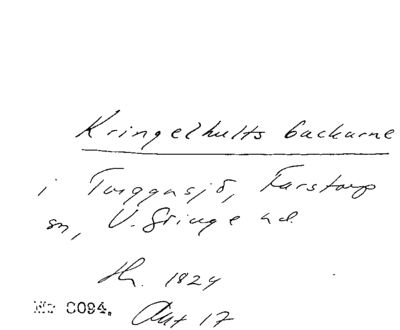 Kringelhults backarne
i Tuggasjö, Farstorp
sn, V. Göinge hd.
Hr. 1824
No 0094. Ant 17